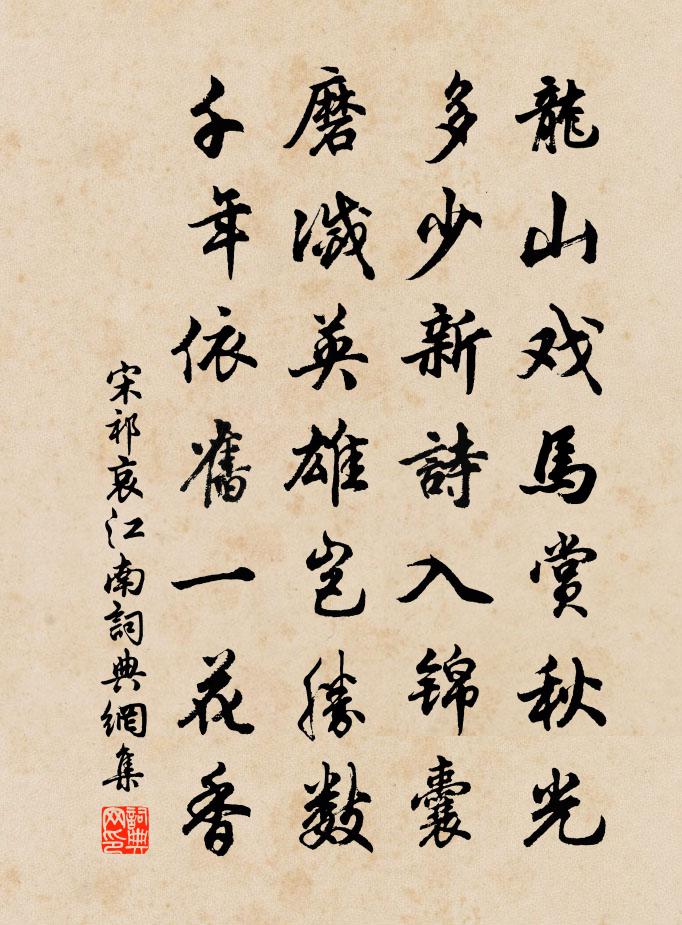 龍山戏馬賞秋光
多少新詩入锦囊
磨滅英雄岂勝數
千年依舊一花香
宋祁哀江南詞典網集
詞典网印